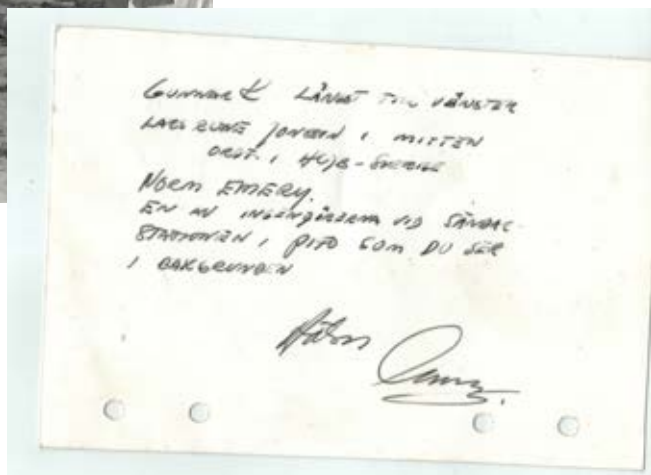 GUNNAR K LÄNGST TILL VÄNSTER
LARS RUNE JONSSON I MITTEN
ORDF. I HCJB-SVERIGE
NORM EMERY.
EN AV INGENJÖRERNA VID SÄNDAR-
STATIONEN I PIFO SOM DU SER
I BAKGRUNDEN